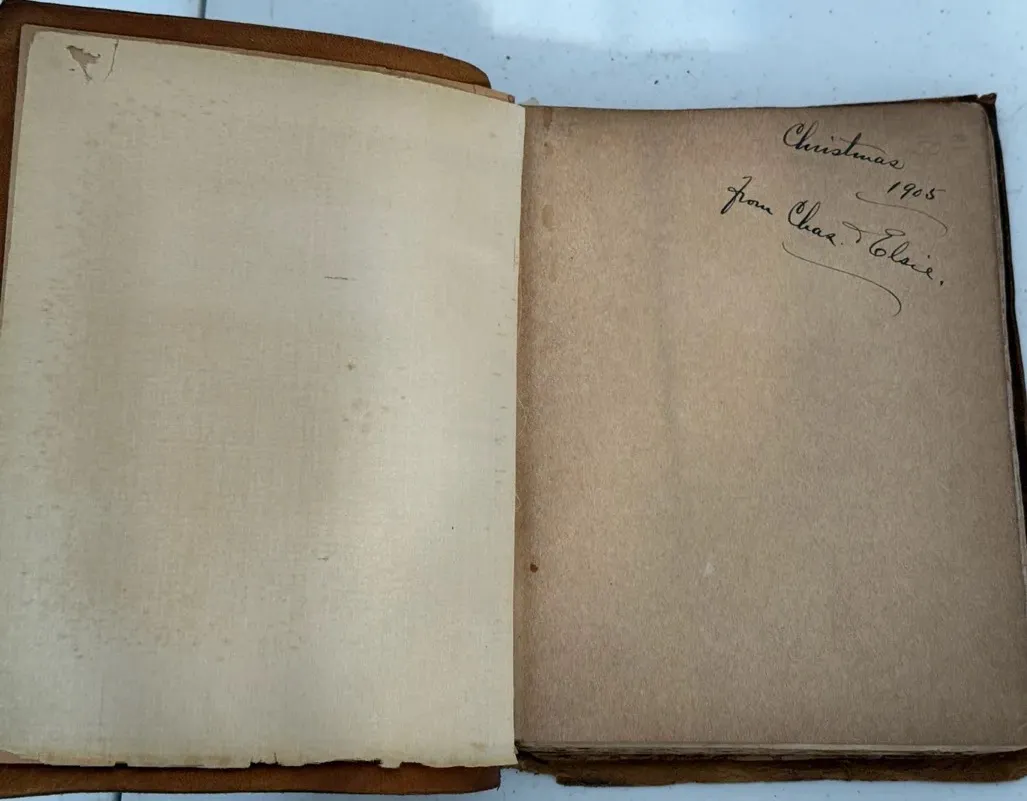 Christmas
1905
from Chas. & Elsie.